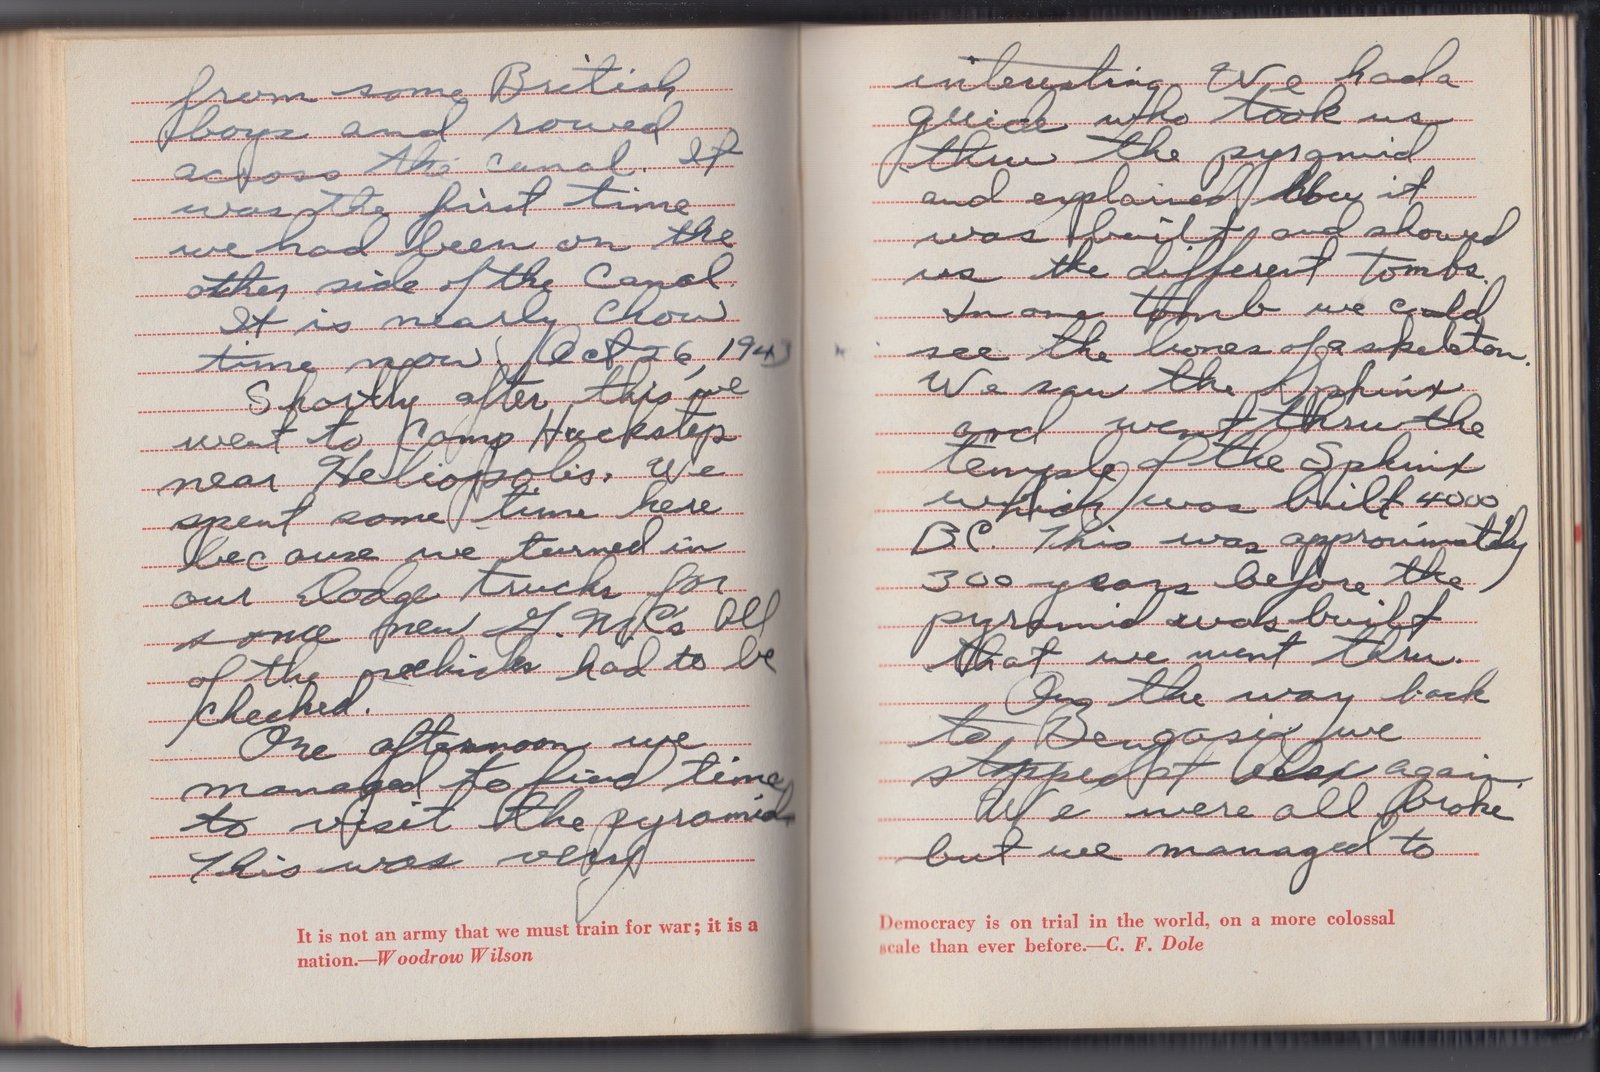 from some British
boys and rowed
across the canal. It
was the first time
we had been on the
other side of the Canal.
It is nearly Chow
time now. (Oct 26, 1943
Shortly after this we
went to Camp Huckstep
near Heliopolis. We
spent some time here
because we turned in
our Dodge trucks for
some new G.M.C's All
of the vehicles had to be
checked.
One afternoon we
managed to find time
to visit the pyramid
This was very
It is not an army that we must train for war; it is a
nation.—Woodrow Wilson
interesting We had a
guide who took us
thru the pyramid
and explained how it
was built and showed
us the different Tombs.
In one Tomb we could
see the bones of a skeleton.
We saw the Sphinx
and went thru the
temple of the Sphinx
which was built 4000
BC. This was approximately
300 years before the
pyramid was built
that we went thru.
On the way back
to Bengasi we
stopped at again
We were all broke
but we managed to
Democracy is on trial in the world, on a more colossal
scale than ever before.—C. F. Dole